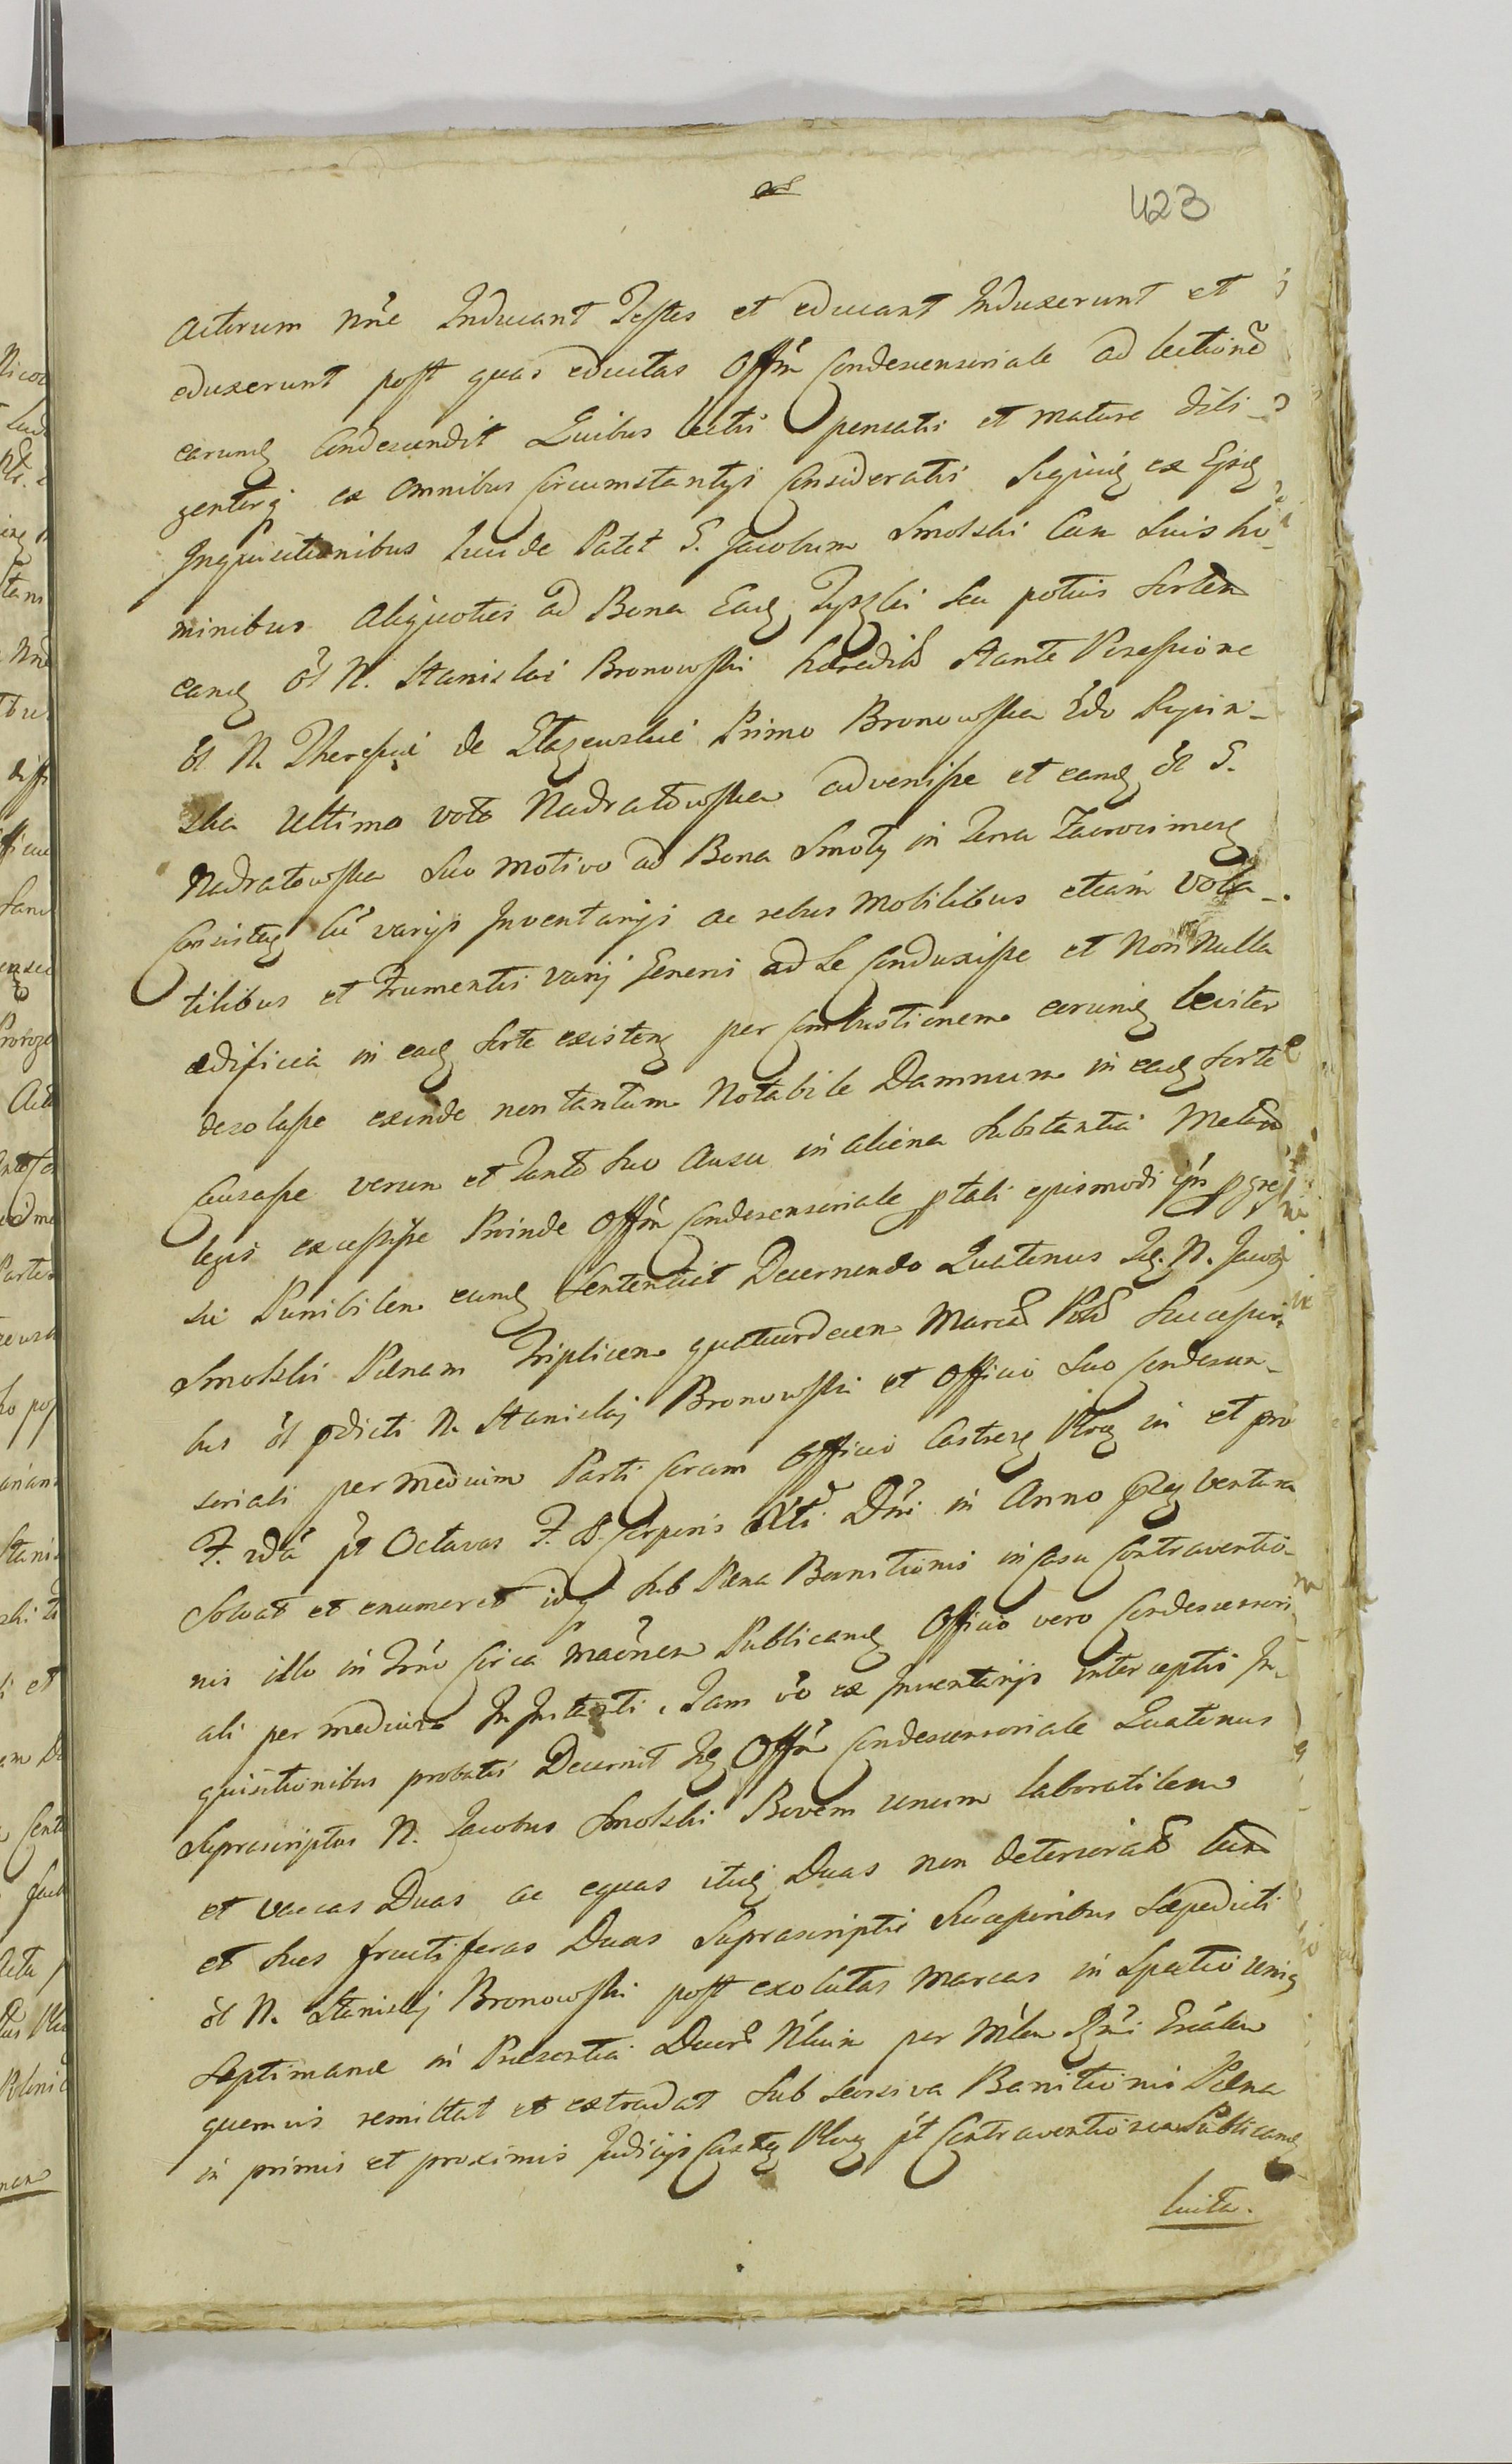 423
Actorum nn̄e Inducant Testes et educant Induxerunt et
eduxerunt post quas eductas Offm̄ Condescensoriale ad lectionē
earumq Condescendit Quibus lectis pensatis et mature dili-
genterq ex omnibus Circumstantijs Consideratis Siquiq ex Ejsq
Inquisitionibus Lucide Patet G. Jacobum Smolski Cum Suis ho-
minibus Aliquoties ad Bona Eaq Tyszki Seu potius Sortem
eamq ol N. Stanislai Bronowski haeredit Stante Possessione
ol N. Theressiae de Staszewskie Primo Bronowska 2do Rypin-
ska Ultimo voto Nadratowska advenisse et eamq ol G.
Nadratowska Suo Motivo ad Bona Smoły in Terra Zacrocimeq
Consisteq Cū varijs Inventarijs ac rebus Mobilibus etiam Vola-
tilibus et Frumentis varij Generis ad Se Conduxisse et Non Nulla
aedificia in eaq Sorte existenq per Combustionem earumq leviter
desolasse exinde non tantum Notabile Damnum in eaq Sorte
Causasse verum et Tanto Suo Ausu in aliena Substantia Metam
legis excessisse Proinde Offm̄ Condescensoriale ptali ejusmodi
sui Punibilem eumq Sententiat Decernendo Quatenus Iq. N. Jacob
Smolski Paenam Triplicem quatuordecem Marcar Pol Successori-
bus ol pdicti N. Stanislaj Bronowski et Officio Suo Condescen-
soriali per medium Parti Coram Officio Castreq Ploq in et pro
F. 2da pt Octavas F. S. Corporis Xti Dn̄i in Anno pq Ventura
Solvat et enumeret idq Sub Paena Bannitionis in Casu Contraventio-
nis illo in Trno Circa Publicanq Officio vero Condescensori-
ali per medium Instanti, Tam vo ex Inventarijs interceptis In-
quisitionibus probatis Decernit Iq Offm̄ Condescensoriale Quatenus
Suprascriptus N. Jacobus Smolski Bovem unum laboratilem
et vaccas Duas ac equas itiq Duas non deterioratas
et Sues fructiferas Duas Suprascriptis Successoribus Saepedicti
ol N. Stanislaj Bronowski post exolutas marcas in Spatio Uniq
Septimanae in Praesentia per Mlem
quemvis remittat et extradat Sub Seorsiva Banitionis Paena
in primis et proximis Judicijs Castq Ploq pt Contraventionem Publicanq